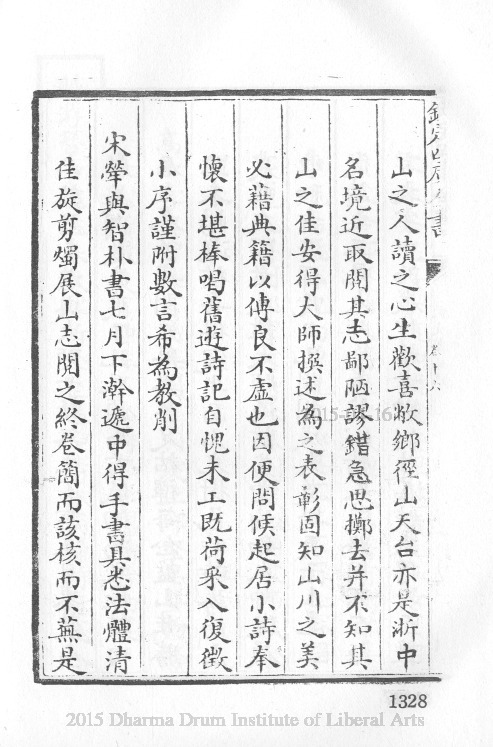 欽定四庫全書
卷十六
山之人讀之心生歡喜敝鄉徑山天台亦是浙中
名境近取閱其志鄙陋謬錯急思擲去并不知其
山之佳安得大師撰述為之表彰固知山川之美
必藉典籍以傳良不虛也因便問候起居小詩奉
懷不堪棒喝舊遊詩記自愧未工既荷采入復徴
小序謹附數言希為教削
宋犖與智朴書七月下澣遞中得手書具悉法體清
佳旋剪燭展山志閱之終卷簡而該核而不蕪是
1328
2015 Dharma Drum Institute of Liberal Arts